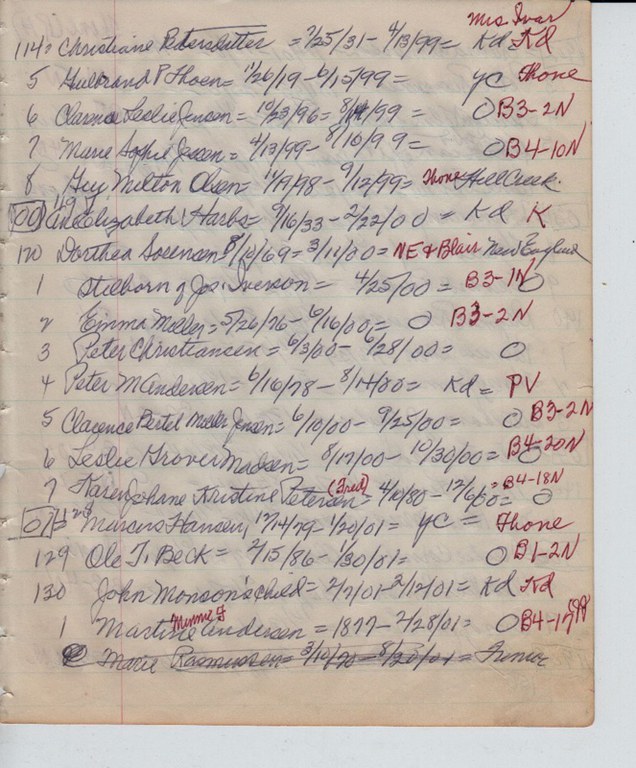 Mrs Ivar
114 = Christiane Petersdatter = 7/25/31 - 4/13/99 = Kd Kd
5 Hulbrand P Thoen = 11/26/19 - 6/15/99 = yc Thone
6 Clarence Leslie Jensen = 10/23/96 = 8/ /99 = O B3-2N
7 Marie Sophie Jessen = 4/13/99 - 8/10/99 = O B4-10N
8 Guy Milton Olsen = 11/9/98 - 9/12/99 = Thone Hill Creek.
00 119 Elizabeth Harbs = 9/16/33 - 2/22/00 = Kd K
120 Dorthea Sorensen = 8/10/69 = 3/11/00 = NE & Blair New England
1 Stilborn of Jos. Iverson = 4/25/00 = B3-1N O
2 Emma Moller = 5/26/76 - 6/16/00 = O B3-2N
3 Peter Christiansen = 6/3/00 - 6/28/00 = O
4 Peter M Andersen = 6/16/78 - 8/14/00 = Kd = PV
5 Clarence Bertel Moller Jensen = 6/10/00 - 9/25/00 = O B3-2N
6 Leslie Grover Madsen = 8/17/00 - 10/30/00 = B4-20N O
7 Karen Johane Kristine Petersen (Fred) = 4/10/80 - 12/6/00 = O = B4-18N
01 128 Marcus Hansen, 12/14/79 - 1/20/01 = yc = Thone
129 Ole T. Beck = 2/15/86 - 1/30/01 = O B1-2N
130 John Monson's child = 2/7/01 - 2/12/01 = Kd Kd
1 Martine Andersen = 1877 - 2/28/01 = O B4-17N
Minnie
Marie Rasmussen = 3/10/70 - 8/20/01 = Junior